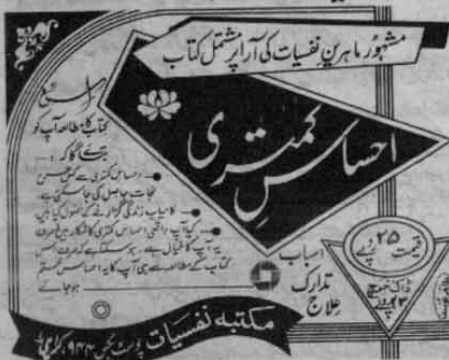 مشہور ماہرین نفسیات کی آرا پر مشتمل کتاب
احساس کمتری
اس
کتاب کا مطالعہ آپ کو
بتائے گا کہ :—
احساس کمتری سے کیونکر
نجات حاصل کی جا سکتی ہے
کامیاب زندگی گزارنے کے اصول کیا ہیں
کیا آپ واقعی احساس کمتری کا شکار ہیں یا صرف
یہ آپ کا خیال ہے۔ ہو سکتا ہے کہ صرف اس
کتاب کے مطالعہ سے ہی آپ کا یہ احساس ختم
ہو جائے
اسباب
تدارک
علاج
قیمت ۲۵ روپے
ڈاک خرچ
۲۳ روپے
مکتبہ نفسیات پوسٹ بکس ۹۴۴ کراچی